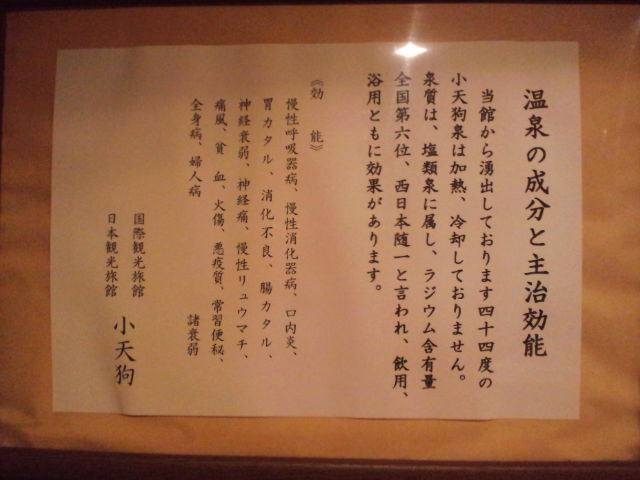 温泉の成分と主治効能
当館から湧出しております四十四度の
小天狗泉は加熱、冷却しておりません。
泉質は、塩類泉に属し、ラジウム含有量
全国第六位、西日本随一と言われ、飲用、
浴用ともに効果があります。
《効　能》
慢性呼吸器病、慢性消化器病、口内炎、
胃カタル、消化不良、腸カタル、
神経衰弱、神経痛、慢性リュウマチ、
痛風、貧　血、火傷、悪疫質、常習便秘、
全身病、婦人病　諸衰弱
国際観光旅館
日本観光旅館
小天狗